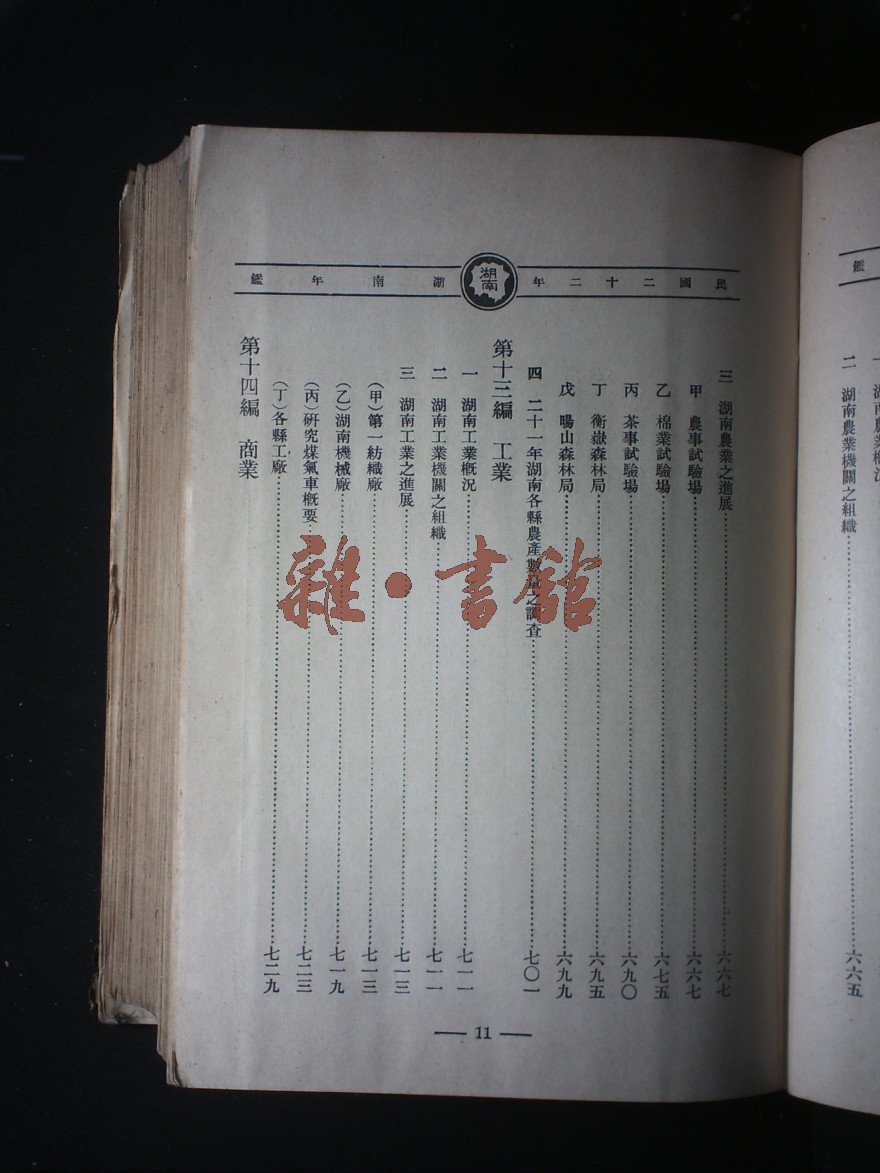 民國二十二年湖南年鑑
湖南
三 湖南農業之進展……六六七
甲 農事試驗場……六六七
乙 棉業試驗場……六七五
丙 茶事試驗場……六九〇
丁 衡嶽森林局……六九五
戊 暘山森林局……六九九
四 二十一年湖南各縣農產數量之調查……七〇一
第十三編 工業
一 湖南工業概況……七一一
二 湖南工業機關之組織……七一一
三 湖南工業之進展……七一三
(甲)第一紡織廠……七一三
(乙)湖南機械廠……七一九
(丙)研究煤氣車概要……七二三
(丁)各縣工廠……七二九
第十四編 商業
— 11 —
雜·書館
鑑
二 湖南農業機關之組織……六六五